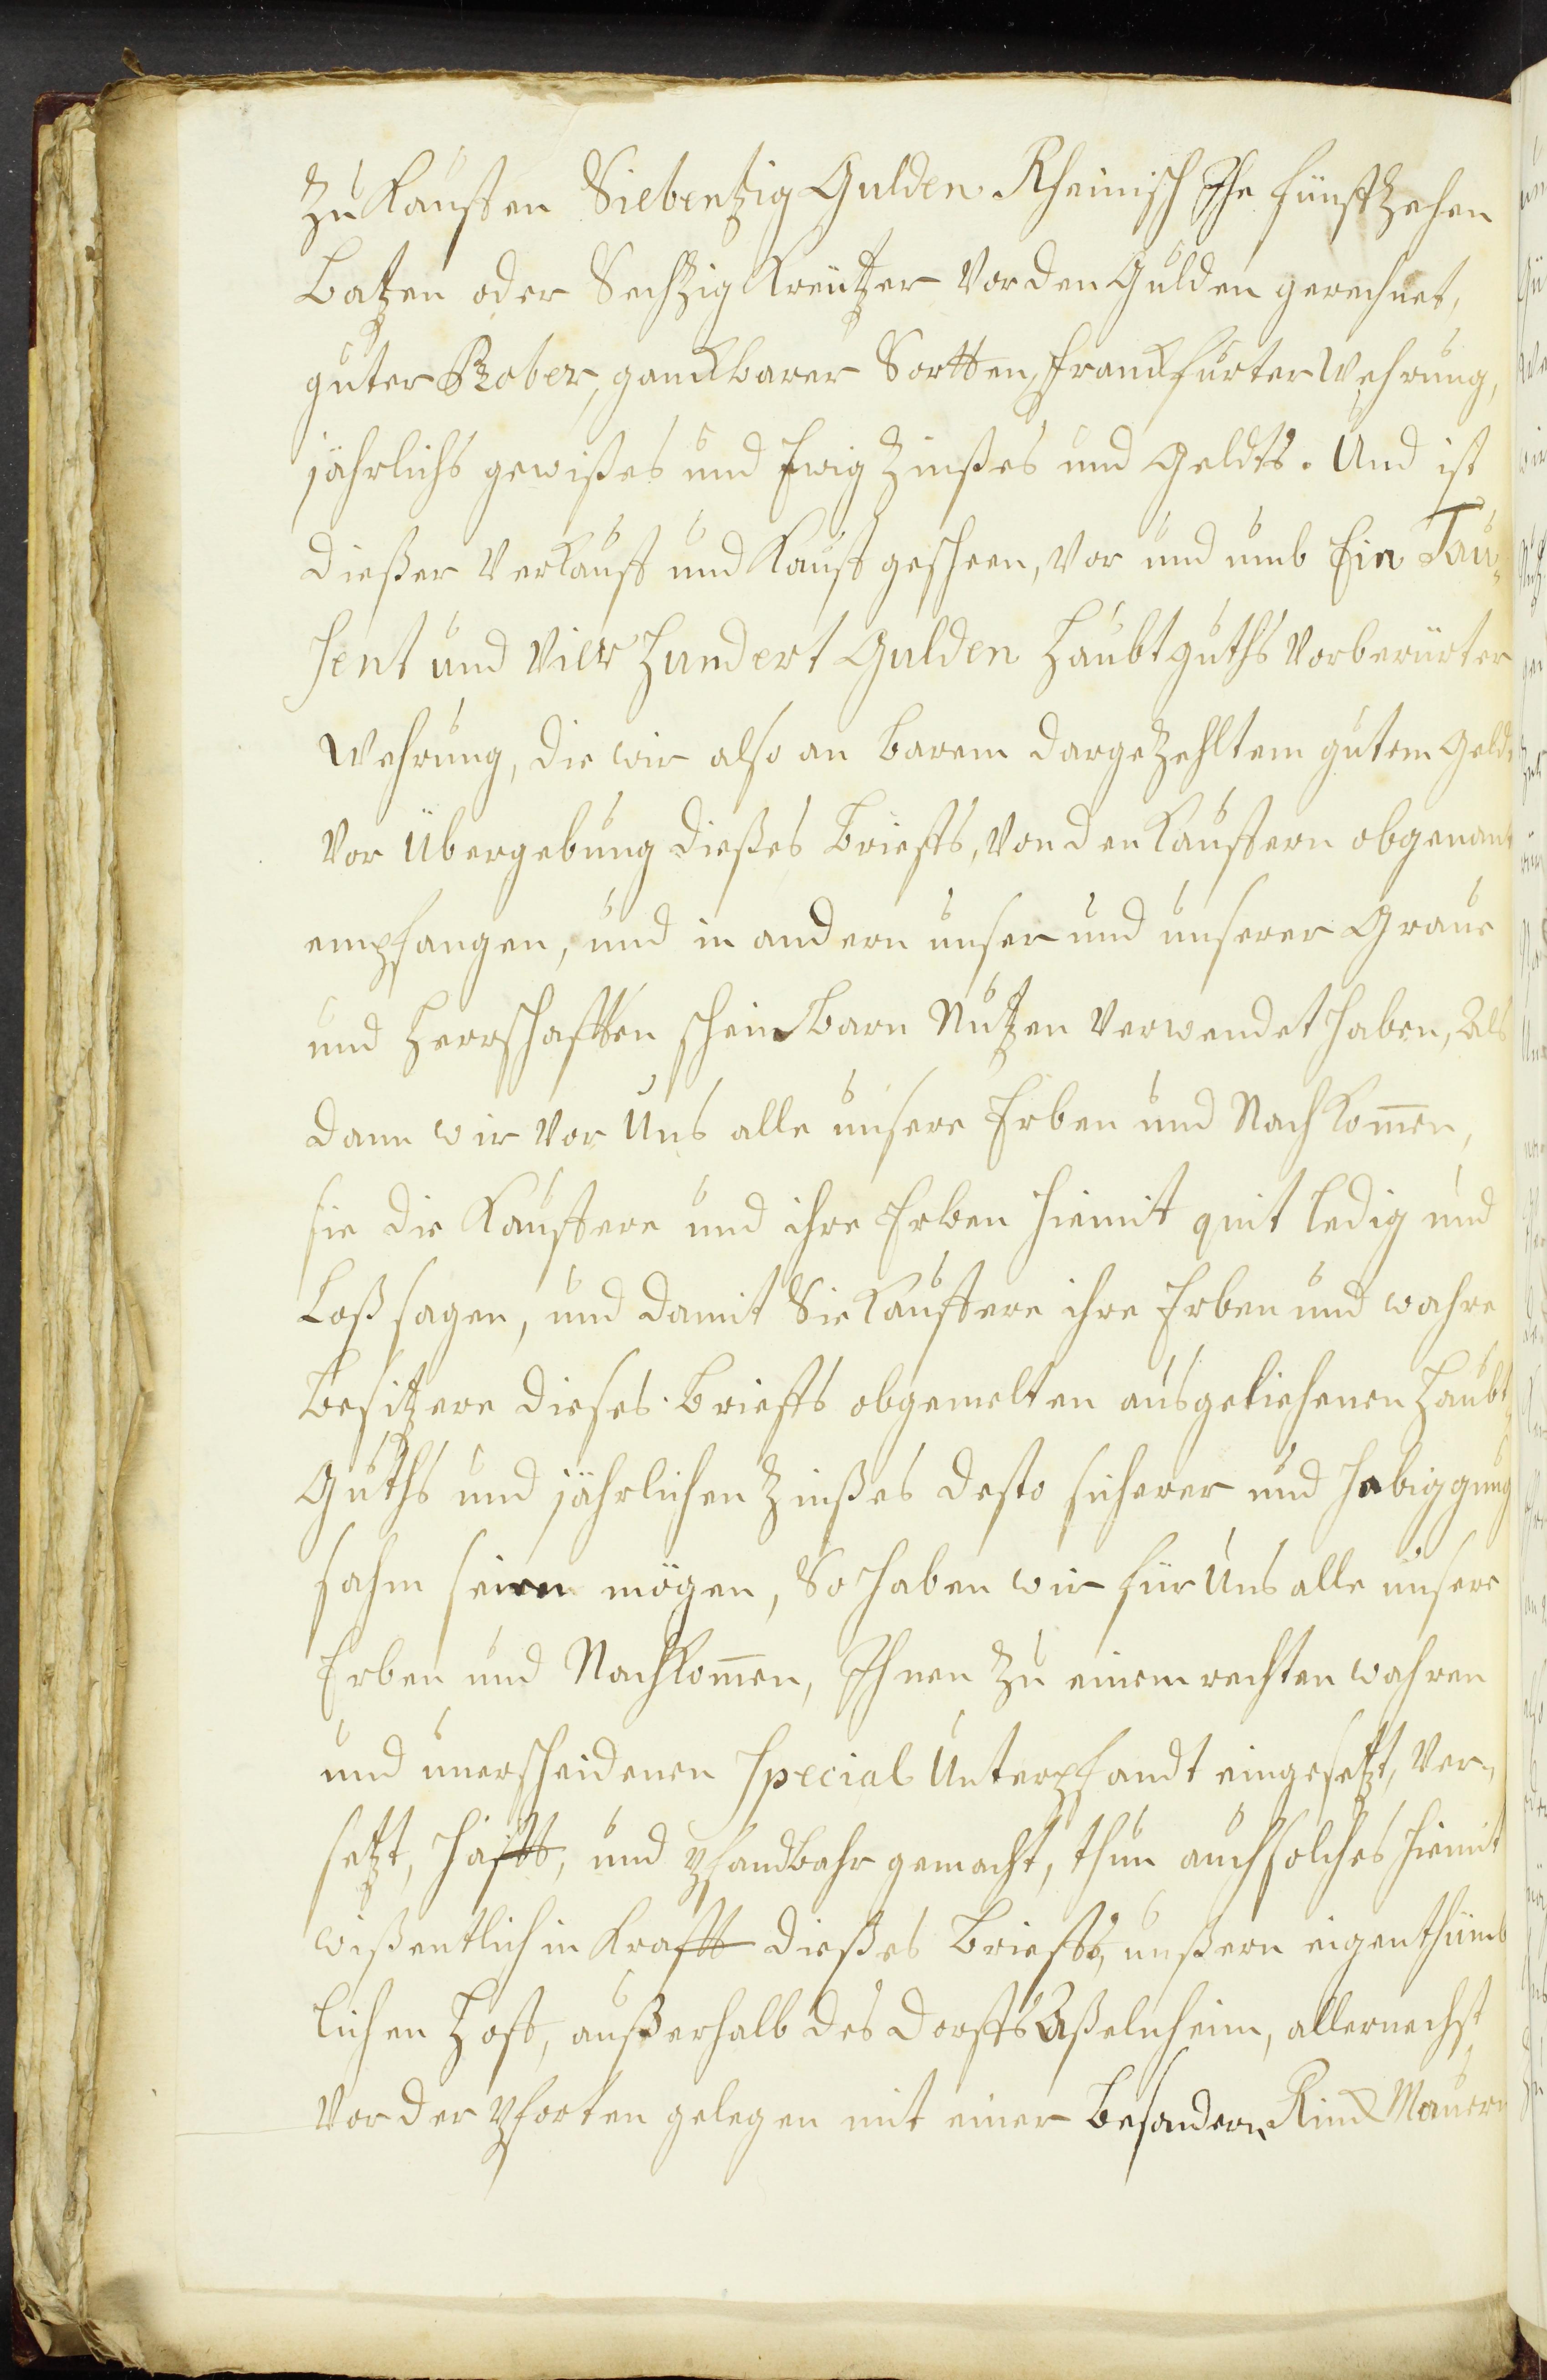 zu Kauffen Siebentzig Gulden Rheinisch Jhe fünffzehen
Batzen oder Sechtzig Kreützer vor den Gulden gerechnet,
guter Prober, gancklbarer Sortten, Franckfurter Wehrung,
jährlichs gewißes und Ewig Zinßes und Geldts. Und ist
dießer Verkauff und Kauff gescheen, vor und umb Ein Tau„
sent und Vier Hundert Gulden Haubtguths vorberürter
Wehrung, die wir also an barem dargezehltem gutem Geldt
vor übergebung dießes Brieffs, von den Kauffern obgenant
empfangen, und in andern unser und unserer Graue
und Herrschafften scheinbarn Nutzen verwendet haben, Als
dann wir vor Uns alle unsere Erben und Nachkom̄en,
sie die Kauffere und ihre Erben hiemit quit ledig und
Loß sagen, und damit Sie Kauffere ihre Erben und wahre
Besitzere dieses Brieffs obgemelten ausgeliehenen Haubt„
Guths und jährlichen Zinßes desto sicherer und habiggung
sahm seien mögen, So haben wir für Uns alle unsere
Erben und Nachkom̄en, Ihnen zu einem rechten wahren
und unerscheidenen Special Unterpfandt eingesetzt, Ver„
setzt, häfft, und pfandbahr gemacht, thun auch solches hiemit
wißentlich in Krafft dießes Brieffs, unßern eigenthümb
lichen Hoff, außerhalb des Dorffs Aßelnheim, allernechst
vor der Pforten gelegen mit einer besondern Rinck Mauern